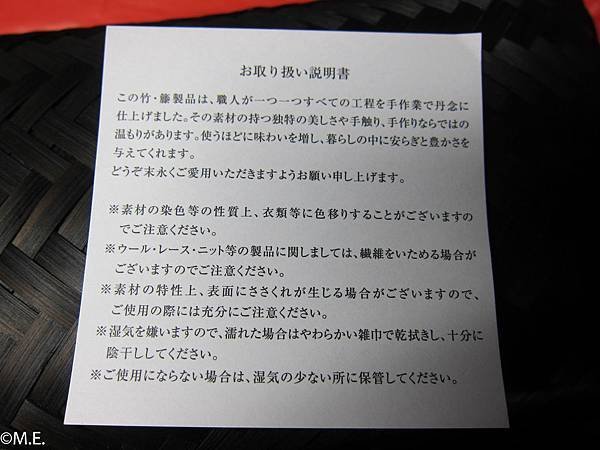 お取り扱い説明書
この竹・籐製品は、職人が一つ一つすべての工程を手作業で丹念に
仕上げました。その素材の持つ独特の美しさや手触り、手作りならではの
温もりがあります。使うほどに味わいを増し、暮らしの中に安らぎと豊かさを
与えてくれます。
どうぞ末永くご愛用いただきますようお願い申し上げます。
※素材の染色等の性質上、衣類等に色移りすることがございますの
でご注意ください。
※ウール・レース・ニット等の製品に関しましては、繊維をいためる場合が
ございますのでご注意ください。
※素材の特性上、表面にささくれが生じる場合がございますので、
ご使用の際には充分にご注意ください。
※湿気を嫌いますので、濡れた場合はやわらかい雑巾で乾拭きし、十分に
陰干ししてください。
※ご使用にならない場合は、湿気の少ない所に保管してください。
©M.E.